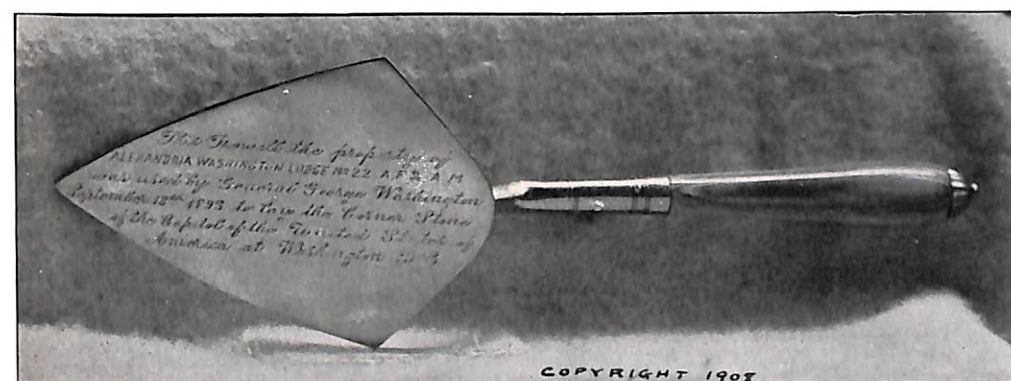 This Trowell the property of
ALEXANDRIA WASHINGTON LODGE No 22 A.F.& A.M
was used by General George Washington
September 18th 1893 to lay the Corner Stone
of the Capitol of the United States of
America at Washington D.C
COPYRIGHT 1908